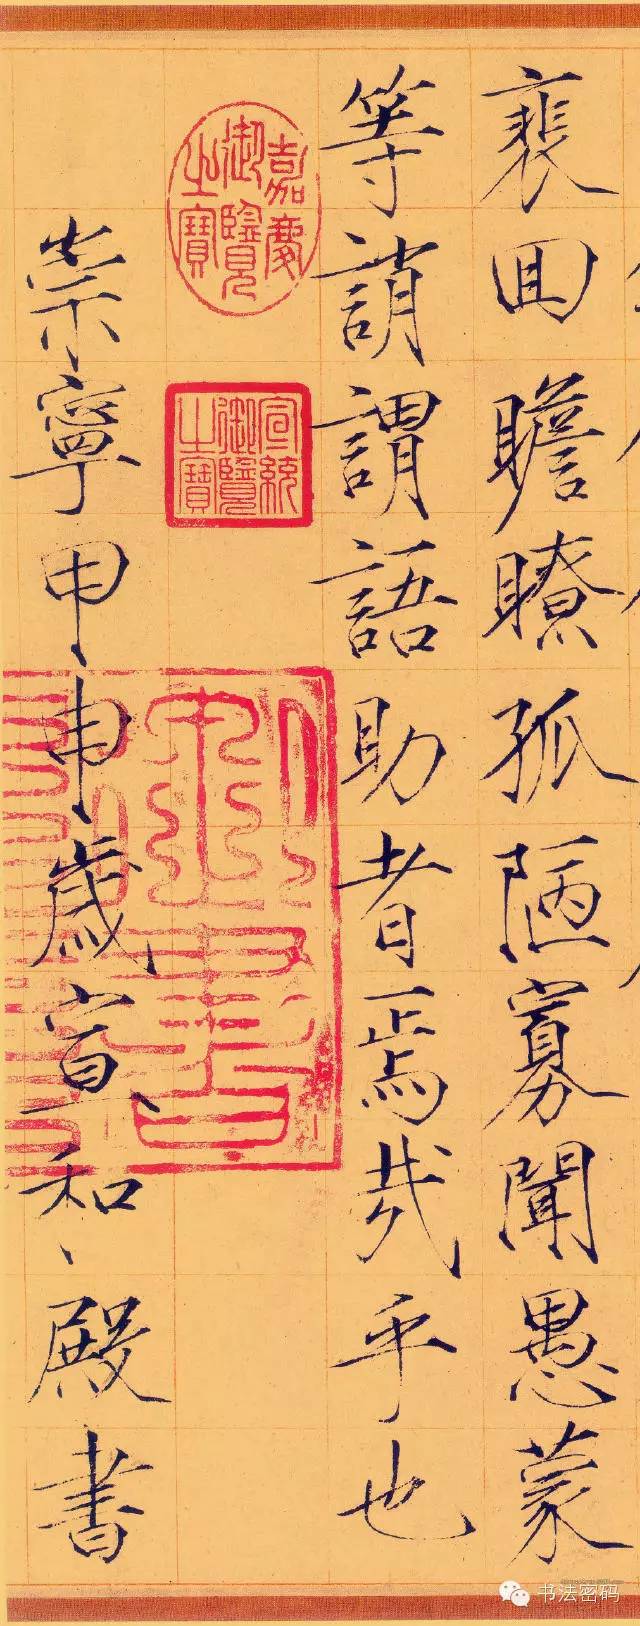 裵回瞻瞭孤陋寡聞愚蒙
等誚謂語助者焉哉乎也
嘉慶御覽之寶
宣統御覽之寶
崇寧甲申歲宣和殿書
书法密码